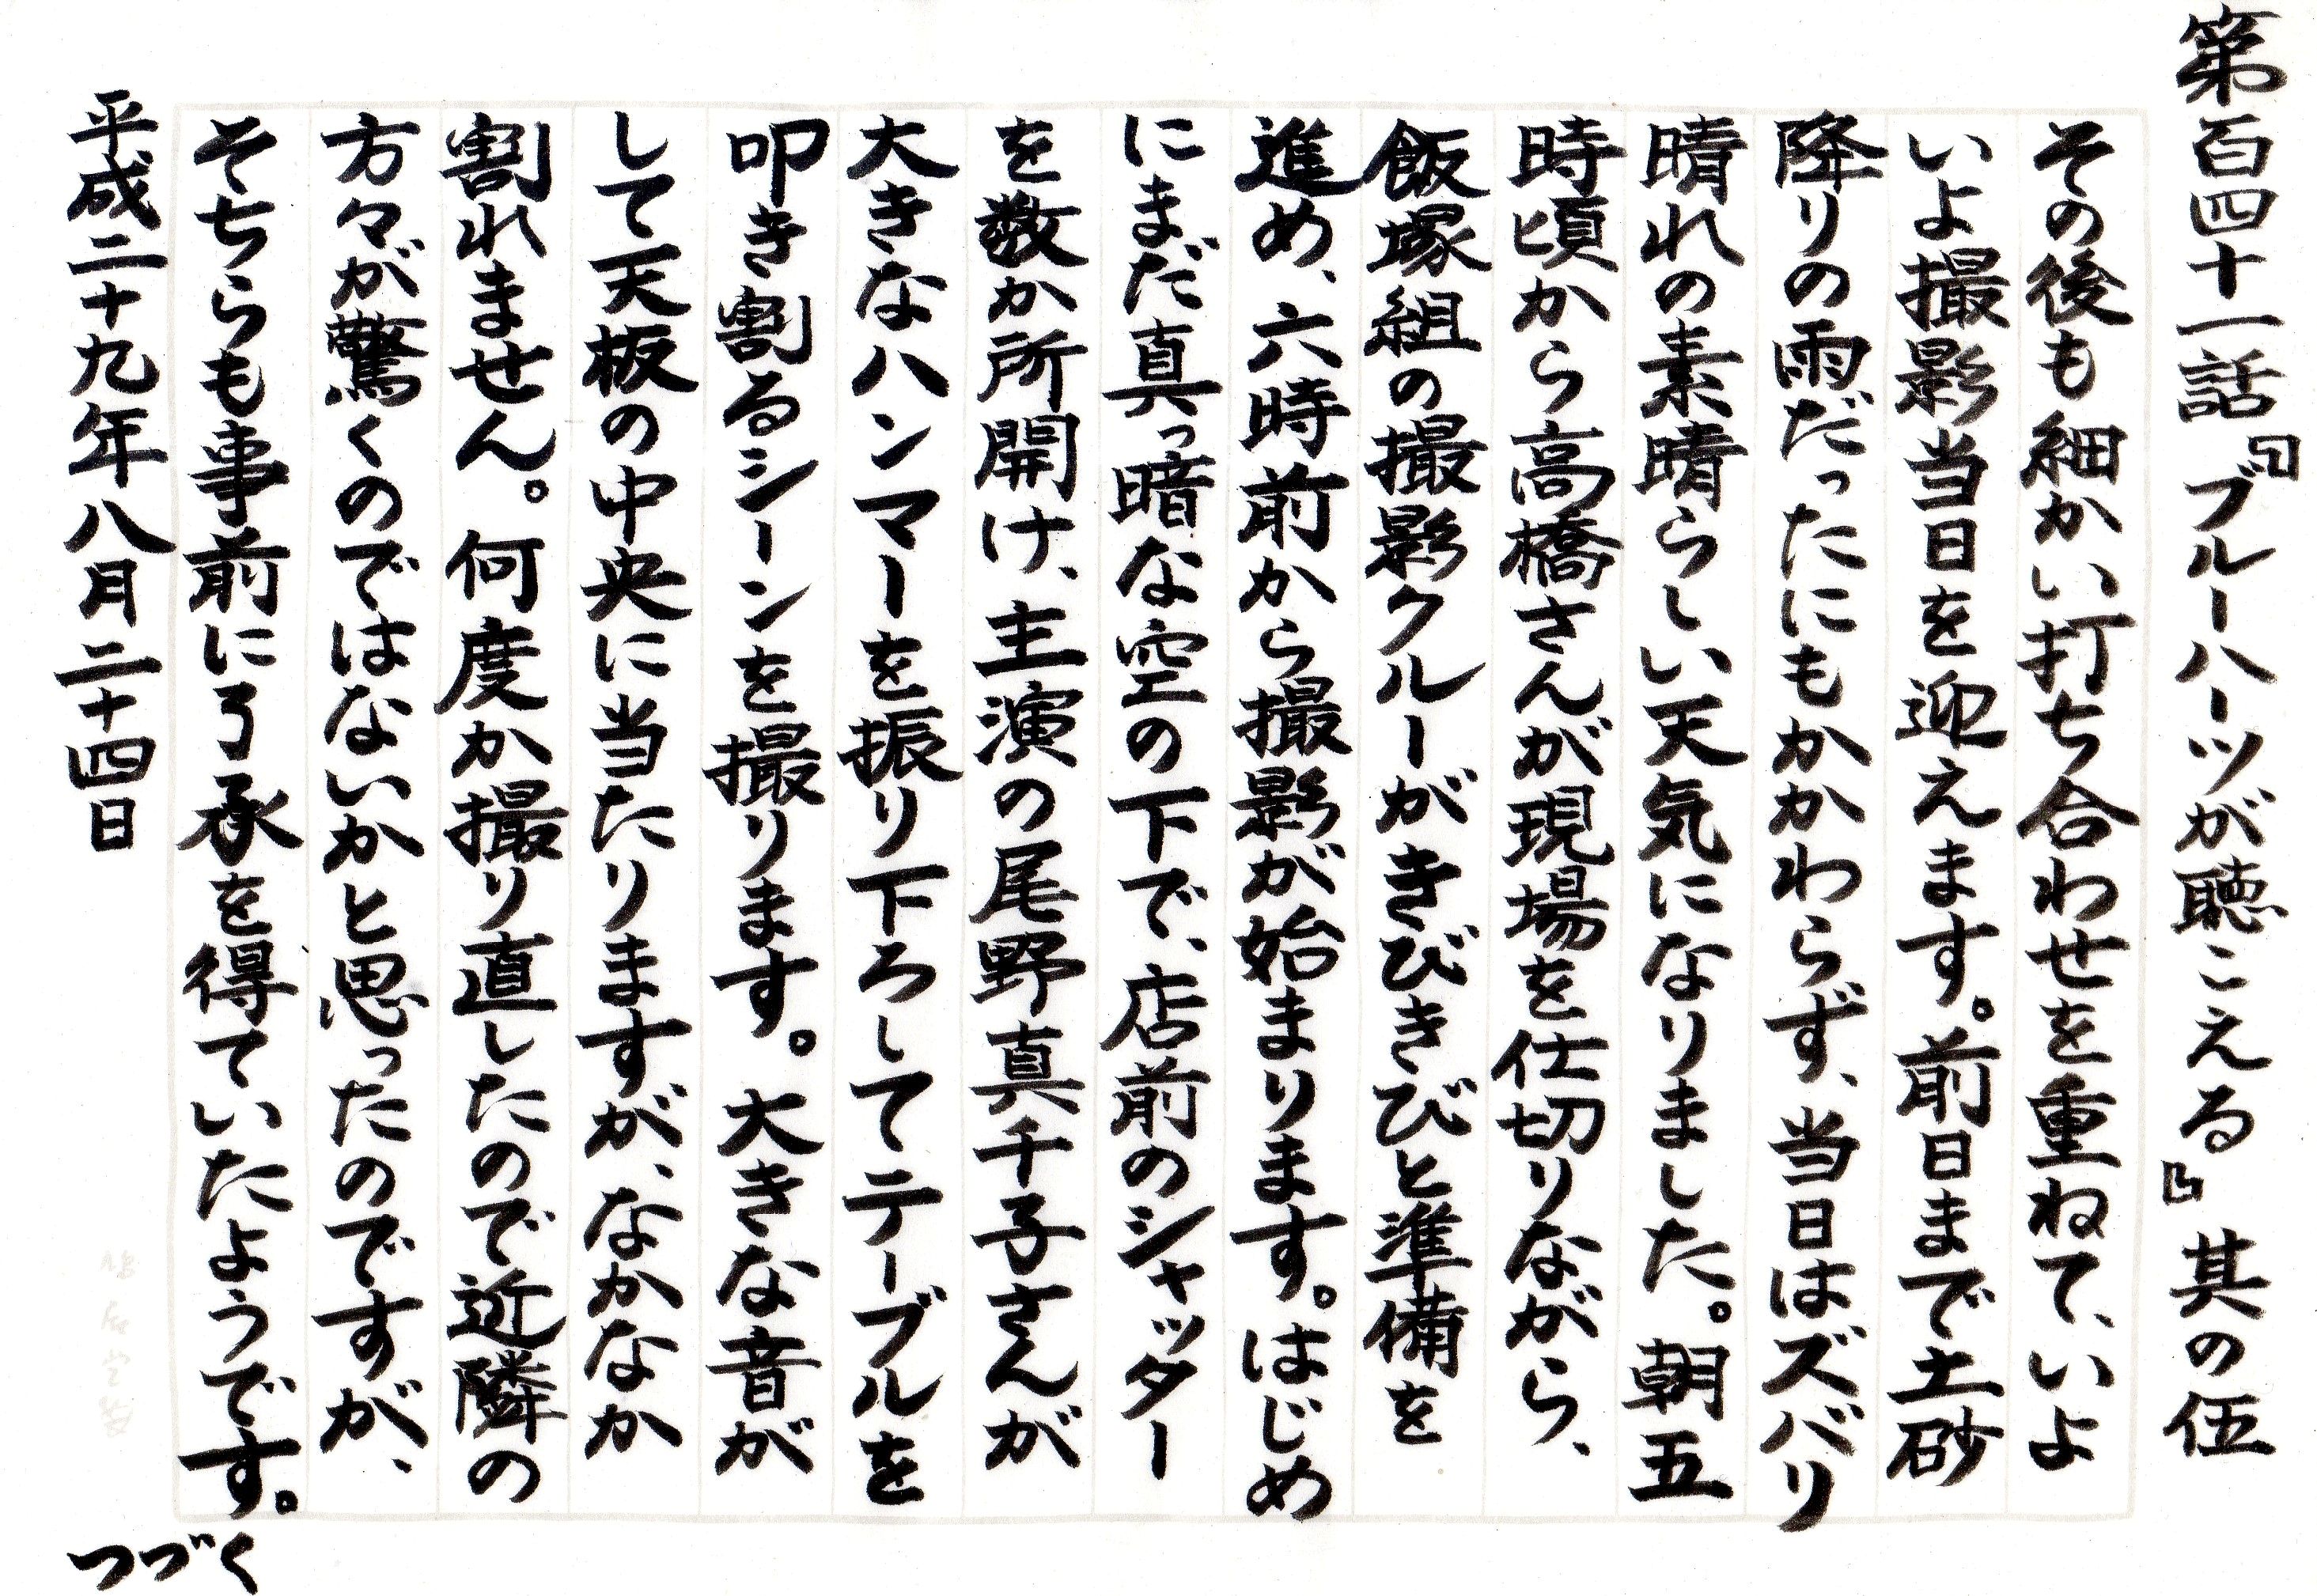 第百四十一話『ブルーハーツが聴こえる』其の伍
その後も細かい打ち合わせを重ねて、いよ
いよ撮影当日を迎えます。前日まで土砂
降りの雨だったにもかかわらず、当日はズバリ
晴れの素晴らしい天気になりました。朝五
時頃から高橋さんが現場を仕切りながら、
飯塚組の撮影クルーがきびきびと準備を
進め、六時前から撮影が始まります。はじめ
にまだ真っ暗な空の下で、店前のシャッター
を数か所開け、主演の尾野真千子さんが
大きなハンマーを振り下ろしてテーブルを
叩き割るシーンを撮ります。大きな音が
して天板の中央に当たりますが、なかなか
割れません。何度か撮り直したので近隣の
方々が驚くのではないかと思ったのですが、
そちらも事前に了承を得ていたようです。
つづく
平成二十九年八月二十四日